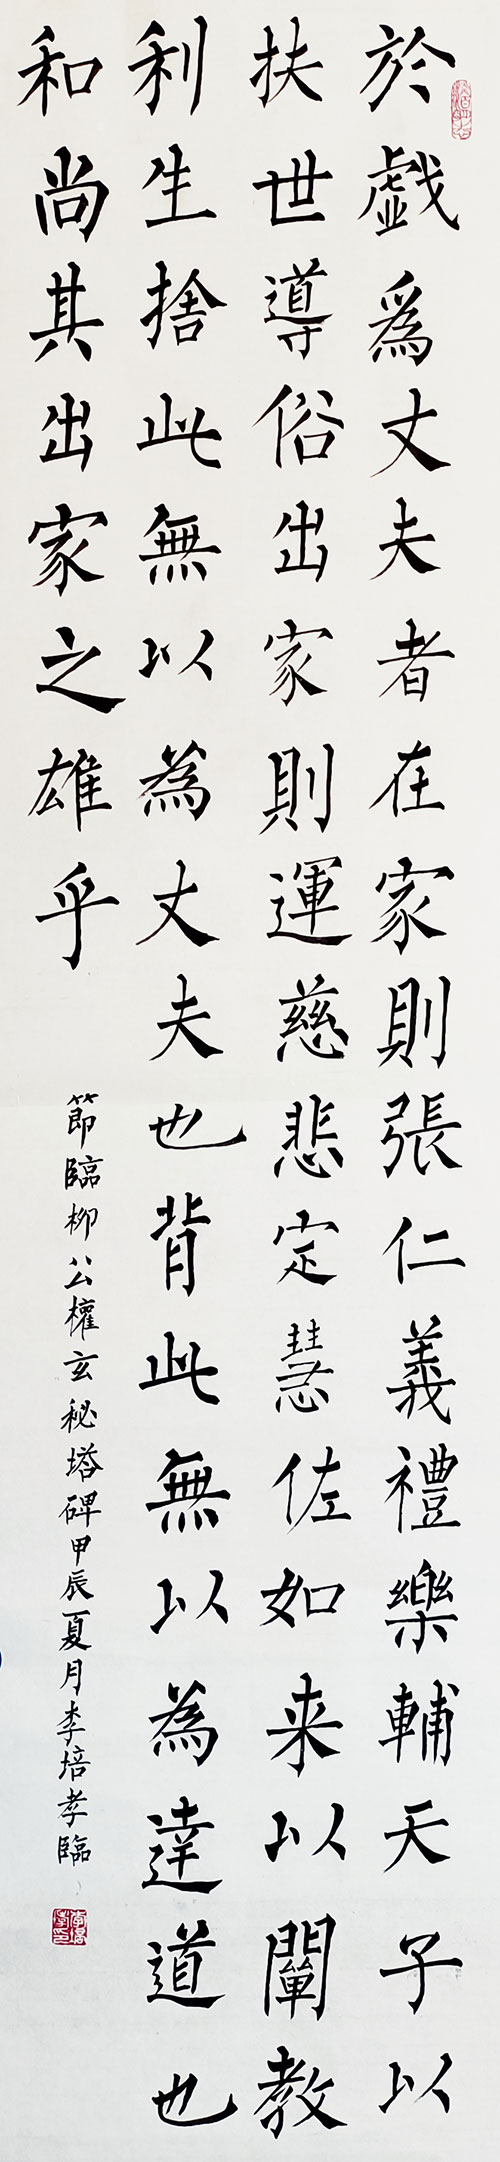 於戲爲丈夫者在家則張仁義禮樂輔天子以
扶世導俗出家則運慈悲定慧佐如来以闡教
利生捨此無以為丈夫也背此無以為達道也
和尚其出家之雄乎
節臨柳公權玄秘塔碑甲辰夏月李培孝臨